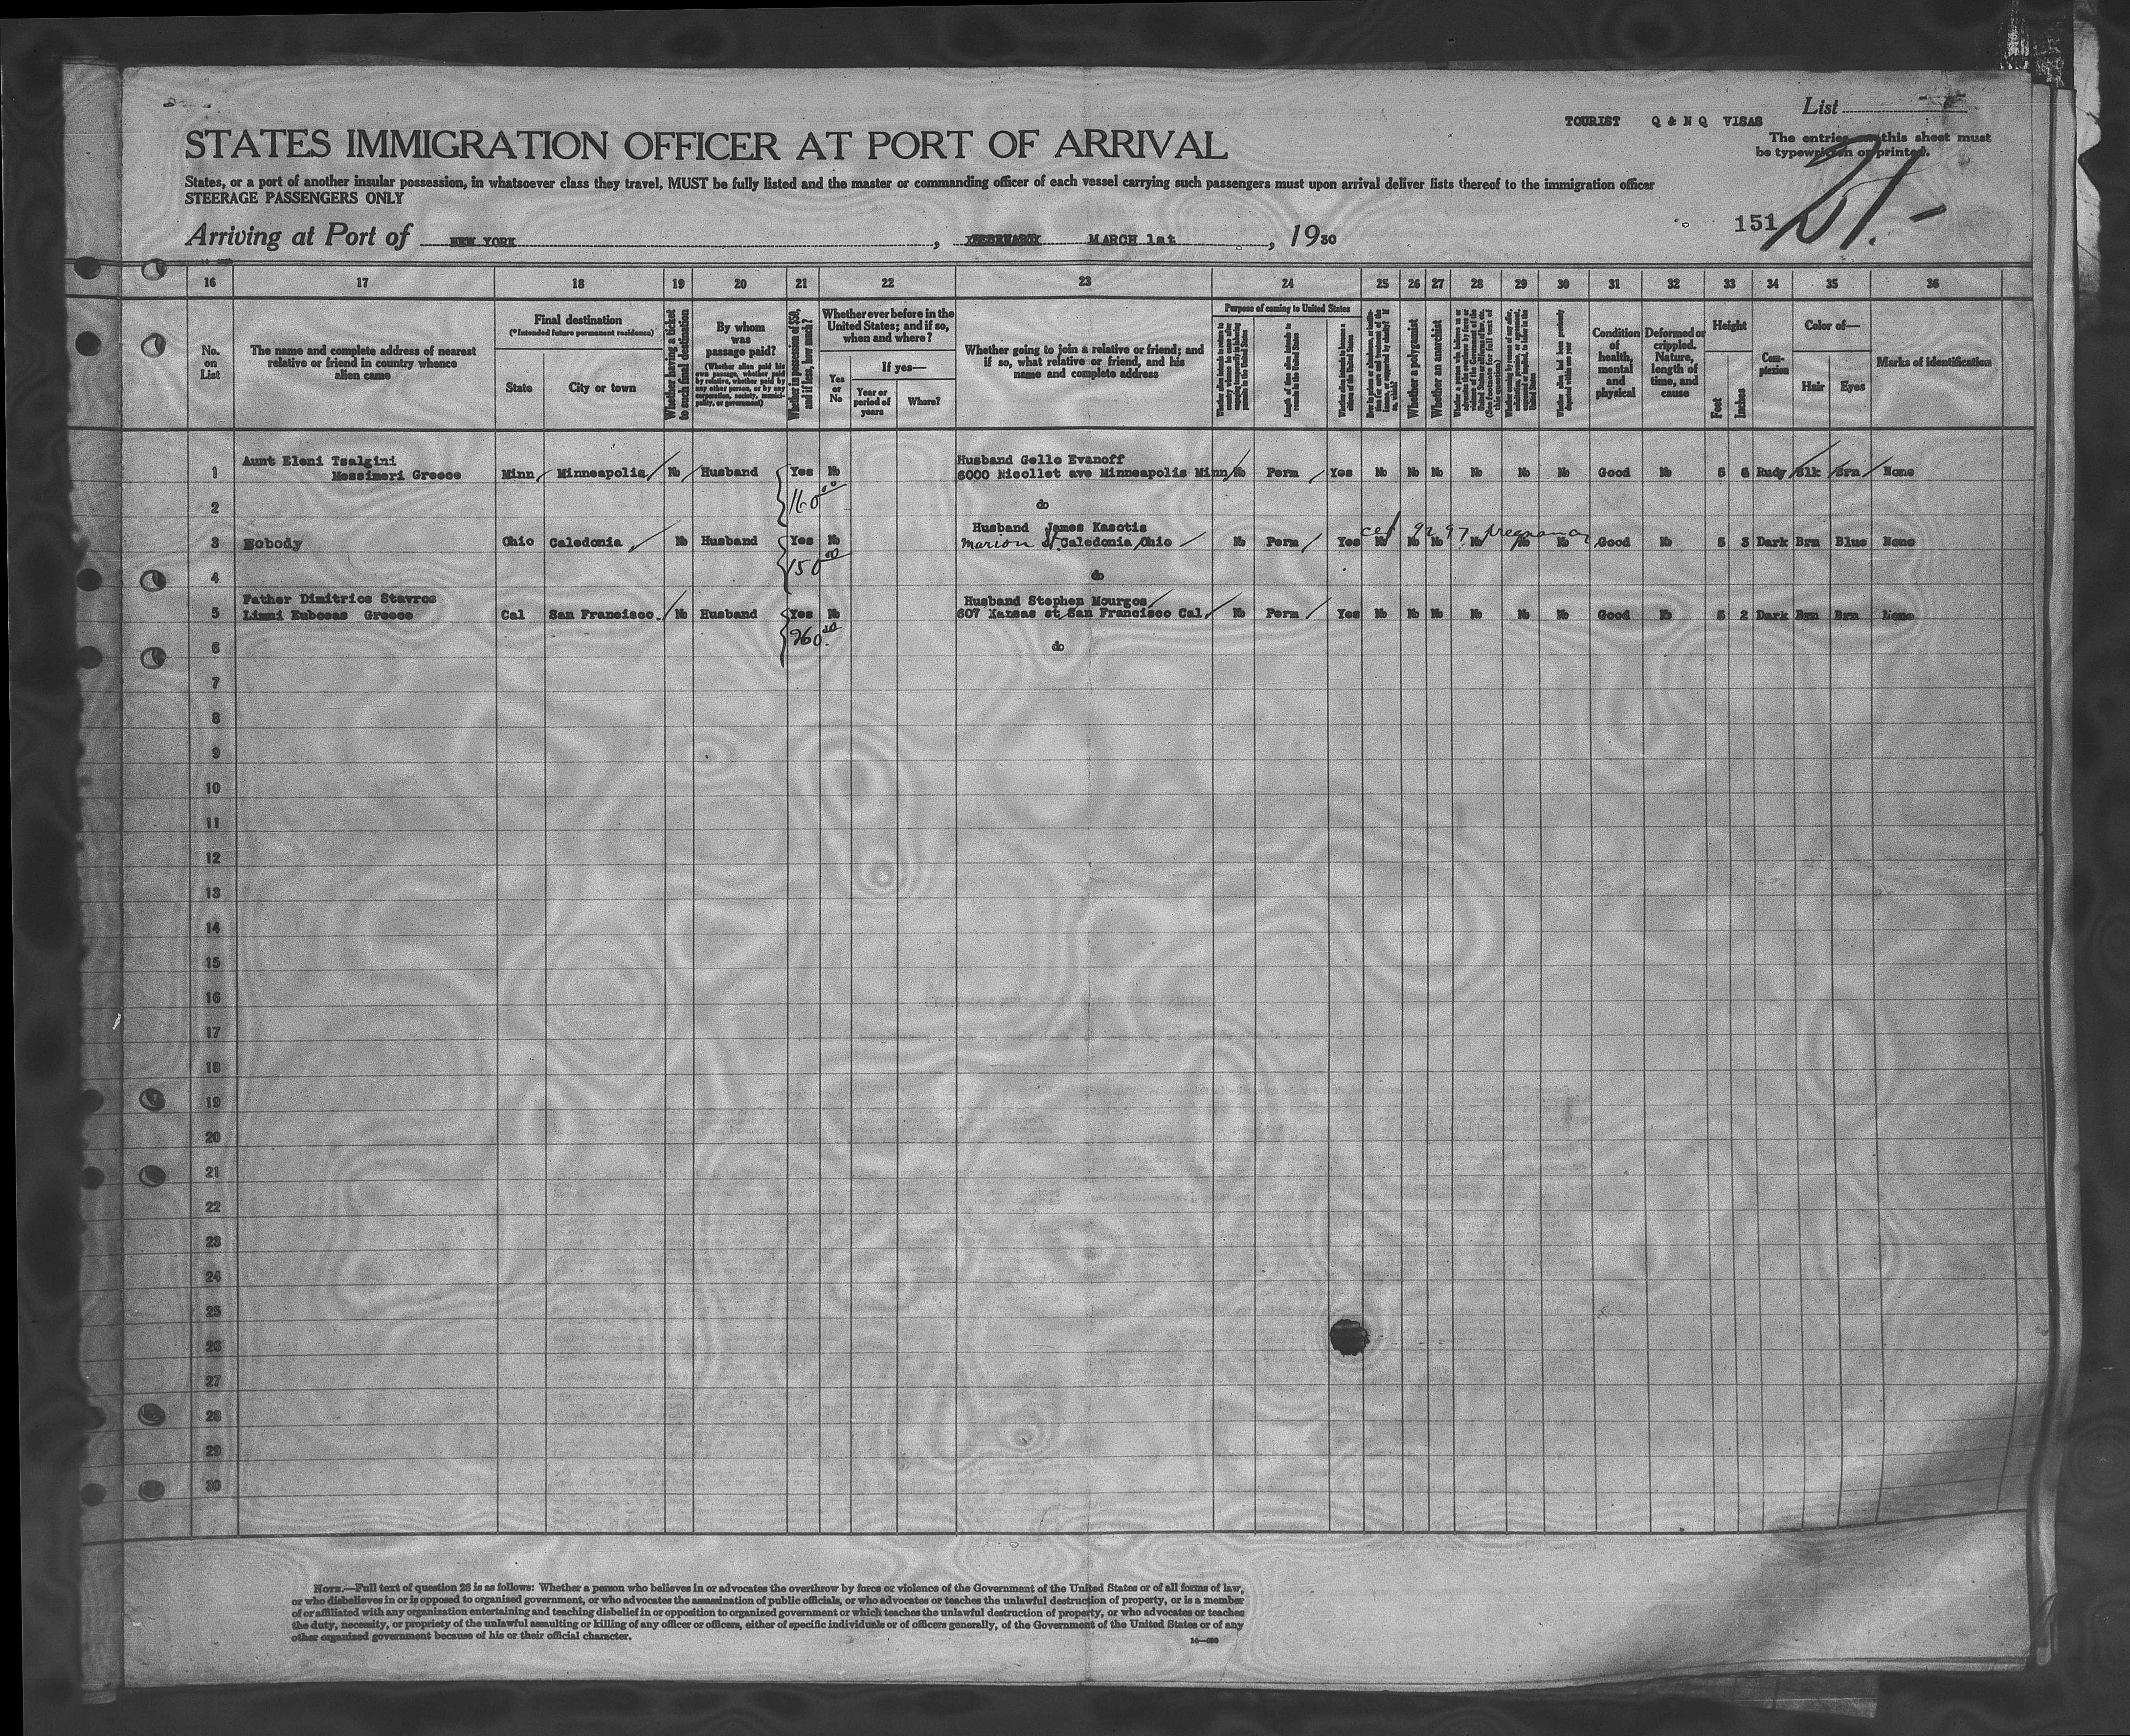 List
TOURIST Q & N Q VISAS
The entries on this sheet must
be typewritten or printed.
STATES IMMIGRATION OFFICER AT PORT OF ARRIVAL
States, or a port of another insular possession, in whatsoever class they travel, MUST be fully listed and the master or commanding officer of each vessel carrying such passengers must upon arrival deliver lists thereof to the immigration officer
STEERAGE PASSENGERS ONLY
151
Arriving at Port of NEW YORK, FEBRUARY MARCH 1st, 1930
16 17 18 19 20 21 22 23 24 25 26 27 28 29 30 31 32 33 34 35 36
No. on List
The name and complete address of nearest relative or friend in country whence alien came
Final destination
(*Intended future permanent residence)
State
City or town
Whether having a ticket to such final destination
By whom was passage paid?
(Whether alien paid his own passage, whether paid by relative, whether paid by any other person, or by any corporation, society, municipality, or government)
Whether in possession of $50, and if less, how much?
Whether ever before in the United States; and if so, when and where?
Yes or No
If yes—
Year or period of years
Where?
Whether going to join a relative or friend; and if so, what relative or friend, and his name and complete address
Purpose of coming to United States
Length of time alien intends to remain in the United States
Whether alien intends to become a citizen of the United States
Whether a polygamist
Whether an anarchist
Condition of health, mental and physical
Deformed or crippled. Nature, length of time, and cause
Height
Feet
Inches
Complexion
Color of—
Hair
Eyes
Marks of identification
Aunt Eleni Tsalgini
Husband Gelle Evanoff
1 Messimeri Greece Minn Minneapolis No Husband Yes No 6000 Nicollet ave Minneapolis Minn No Perm Yes No No No No No No Good No 5 6 Rudy Blk Brn None
2 160 00 do
Husband James Kasotis
cef 92 97 pregnancy
3 Nobody Ohio Caledonia No Husband Yes No Marion St Caledonia Ohio No Perm Yes No No No No No No Good No 5 3 Dark Brn Blue None
4 150 00 do
Father Dimitrios Stavros
Husband Stephen Mourgos
5 Limni Euboeas Greece Cal San Francisco No Husband Yes No 607 Kansas st San Francisco Cal No Perm Yes No No No No No No Good No 5 2 Dark Brn Brn None
6 260 00 do
7
8
9
10
11
12
13
14
15
16
17
18
19
20
21
22
23
24
25
26
27
28
29
30
NOTE.—Full text of question 28 is as follows: Whether a person who believes in or advocates the overthrow by force or violence of the Government of the United States or of all forms of law,
or who disbelieves in or is opposed to organized government, or who advocates the assassination of public officials, or who advocates or teaches the unlawful destruction of property, or is a member
of or affiliated with any organization entertaining and teaching disbelief in or opposition to organized government or which teaches the unlawful destruction of property, or who advocates or teaches
the duty, necessity, or propriety of the unlawful assaulting or killing of any officer or officers, either of specific individuals or of officers generally, of the Government of the United States or of any
other organized government because of his or their official character.